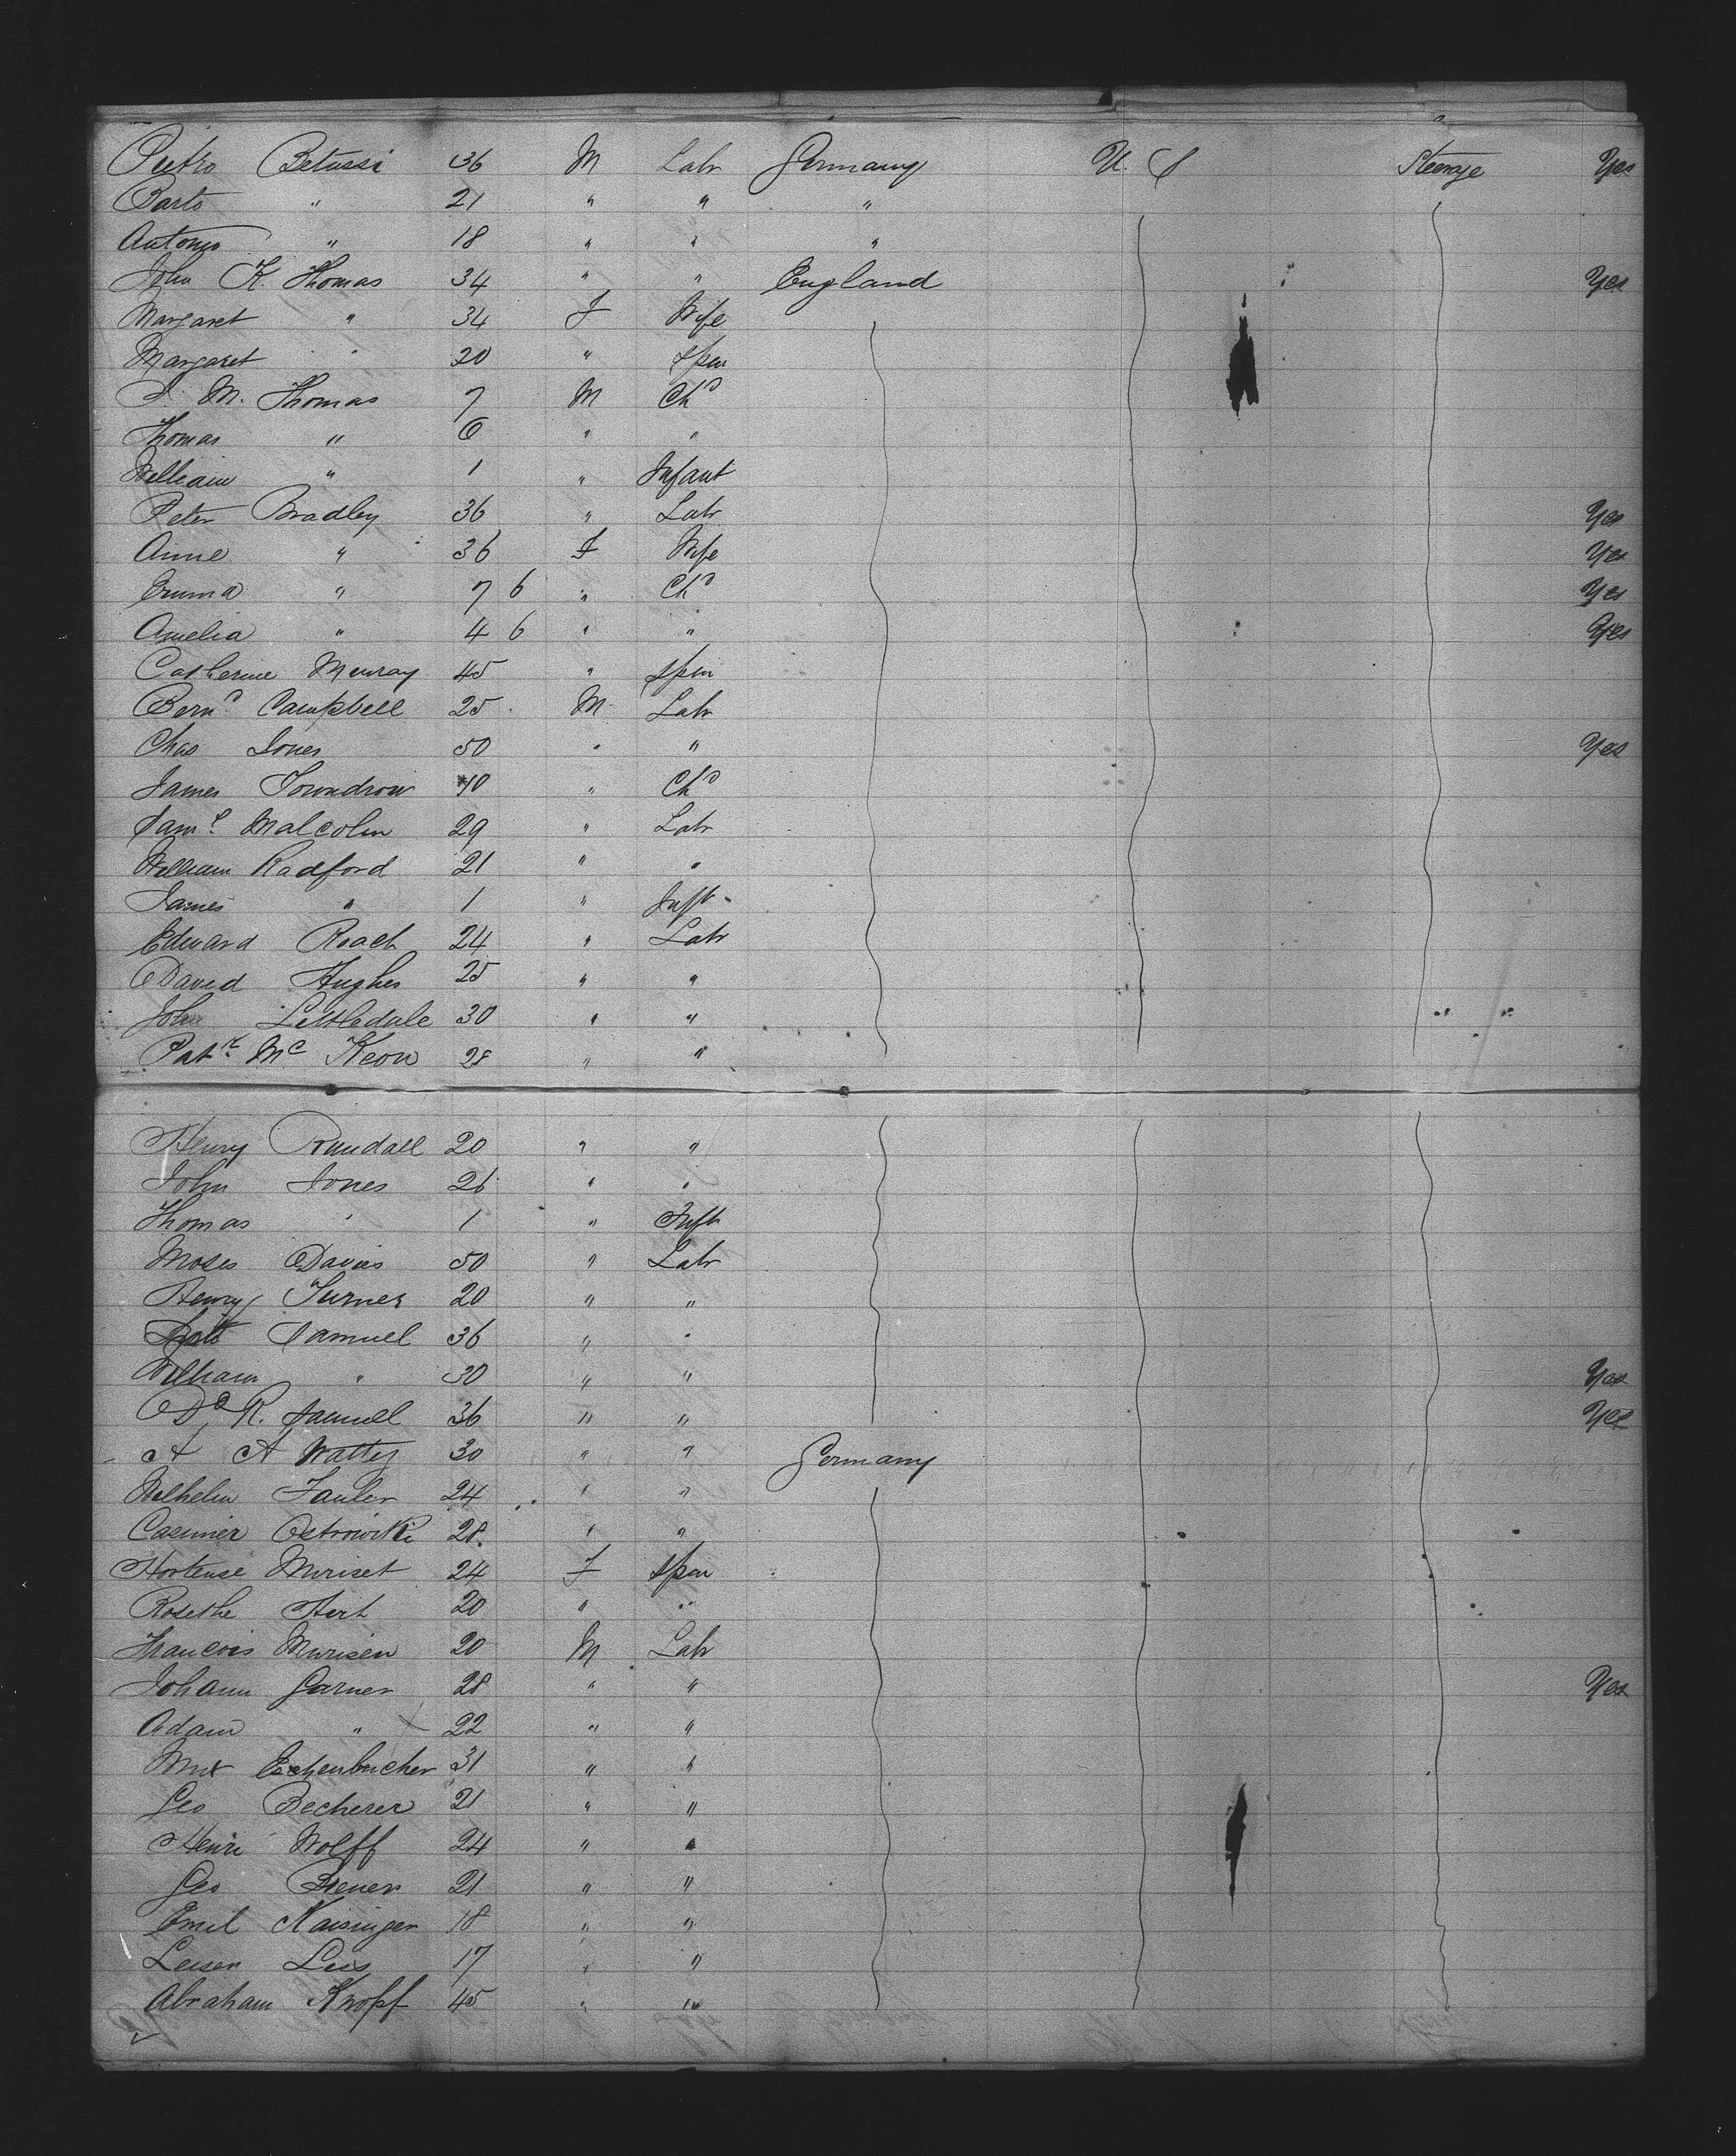 Pietro Betussi 36 M Labr Germany U. S Steerage Yes
Barto " 21 " " "
Antonio " 18 " " "
John K. Thomas 34 " " England Yes
Margaret " 34 F Wife
Margaret " 20 " Spin
M. Thomas 7 M Chd
Thomas " 6 " "
William " 1 " Infant
Peter Bradley 36 " Labr Yes
Anne " 36 F Wife Yes
Emma " 7 6 " Chd Yes
Amelia " 4 6 " " Yes
Catherine Murray 45 " Spin
Bernd Campbell 25 M Labr
Chas Jones 50 " " Yes
James Towndrow 10 " Chd
Saml Malcolm 29 " Labr
William Radford 21 " "
James " 1 " Inft
Edward Roach 24 " Labr
David Hughes 25 " "
John Littledale 30 " "
Patk Mc Keon 28 " "
Henry Randall 20 " "
John Jones 26 " "
Thomas " 1 " Inft
Moses Davies 50 " Labr
Henry Turner 20 " "
Samuel 36 " "
William " 30 " " Yes
R. Samuel 36 " " Yes
A A Watter 30 " " Germany
Wilhelm Fauler 24 " "
Casimier Ostrowiki 28 " "
Hortense Muriset 24 F Spin
Rosethe Hert 20 " "
Francois Murisen 20 M Labr
Johann Garner 28 " " Yes
Adam " 22 " "
Eschenbucher 31 " "
Geo Becherer 21 " "
Henri Wolff 24 " "
Geo Biener 21 " "
Emil Naisinger 18 " "
Leiser Leis 17 " "
Abraham Knopf 45 " "